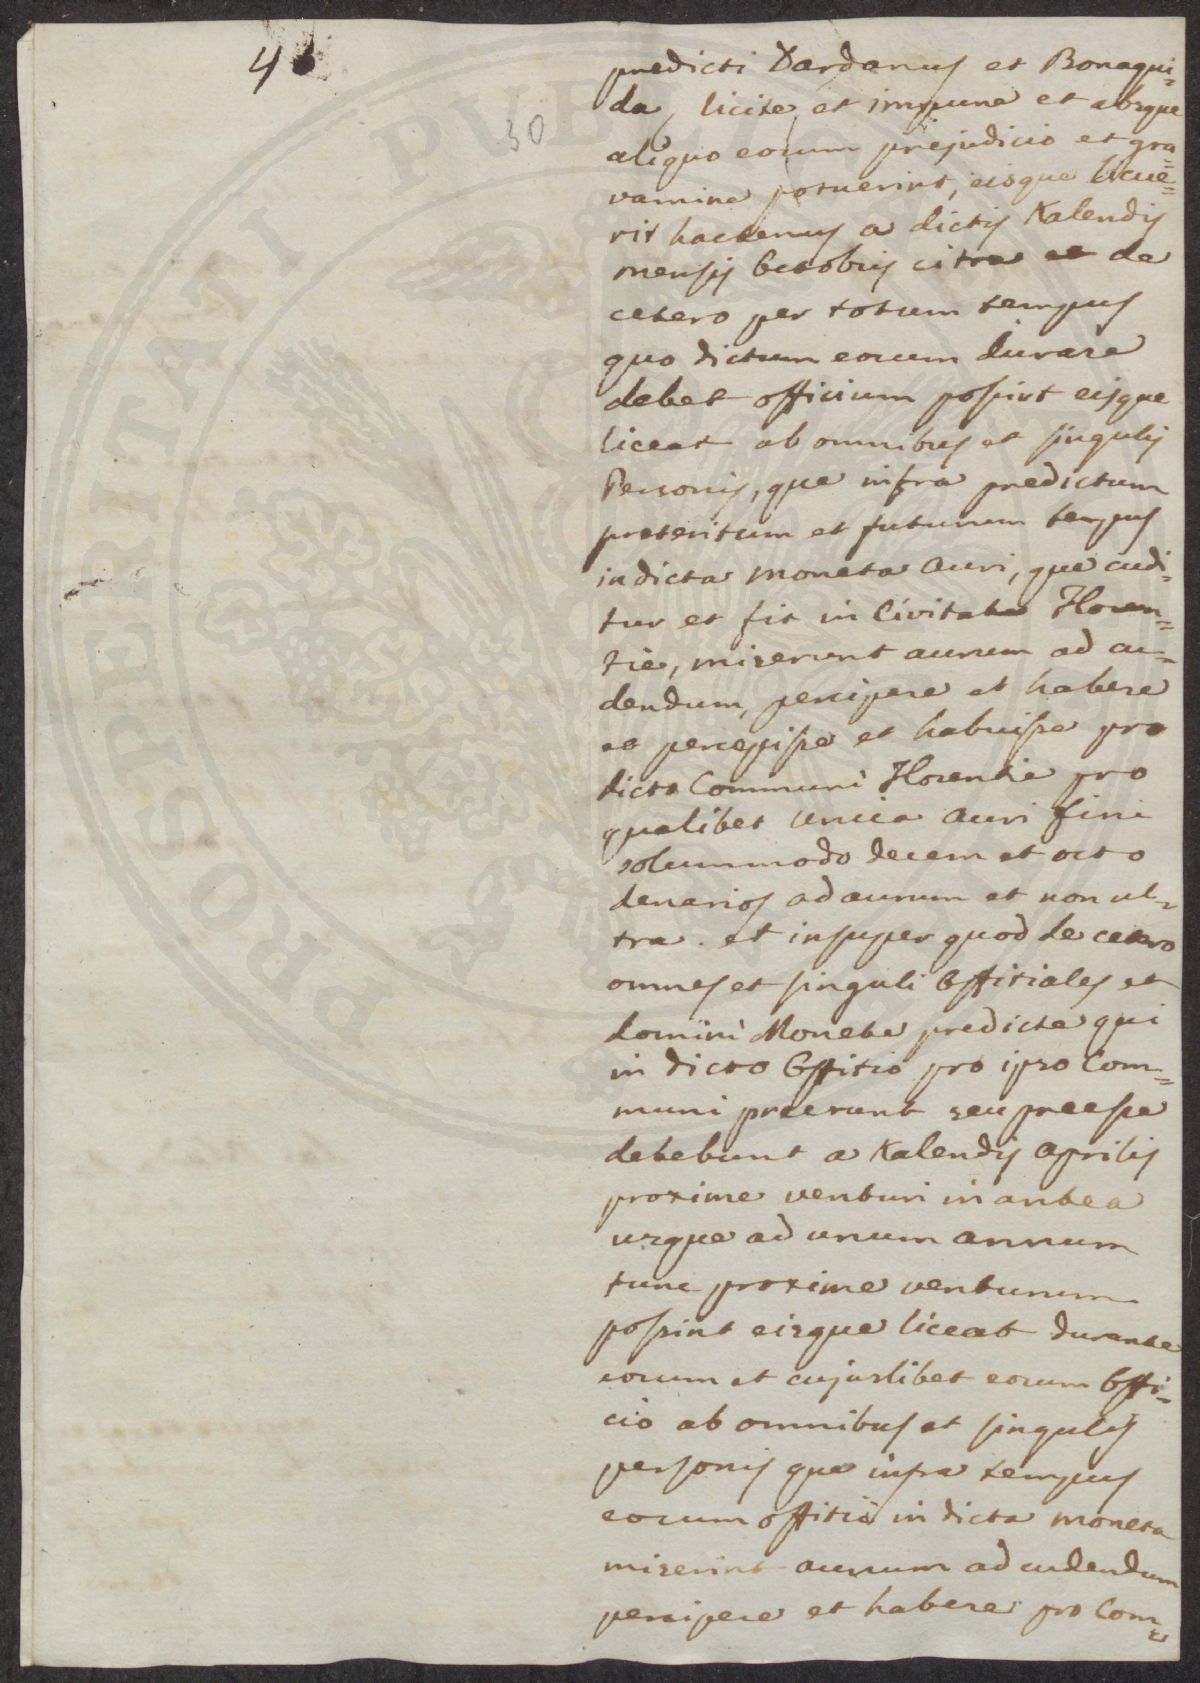 4
30
predicti Dardanus et Bonagui=
da, licite, et impune et absque
aliquo eorum prejudicio et gra=
vamine potuerint, eisque licue=
rit hactenus a dictis Kalendis
mensis Octobris citra et de
cetero per totum tempus
quo dictum eorum durare
debet officium possint eisque
liceat ab omnibus et singulis
Personis, que infra predictum
preteritum et futurum tempus
in dicta moneta Auri, que cudi=
tur et fit in Civitate Floren=
tie, miserunt aurum ad cu=
dendum, percipere et habere
et percepisse et habuisse pro
dicto Communi Florentie pro
qualibet Uncia Auri fini
solummodo decem et octo
denarios ad aurum et non ul=
tra. et insuper quod de cetero
omnes et singuli Offitiales et
domini Monete predicte qui
in dicto Offitio pro ipso Com=
muni preerunt seu preesse
debebunt a Kalendis Aprilis
proxime venturi in antea
usque ad unum annum
tunc proxime venturum
possint eisque liceat durante
eorum et cujuslibet eorum Offi=
cio ab omnibus et singulis
personis que infra tempus
eorum offitii in dicta moneta
miserint aurum ad cudendum
percipere et habere pro Com=
PROSPERITATI PUBLICAE